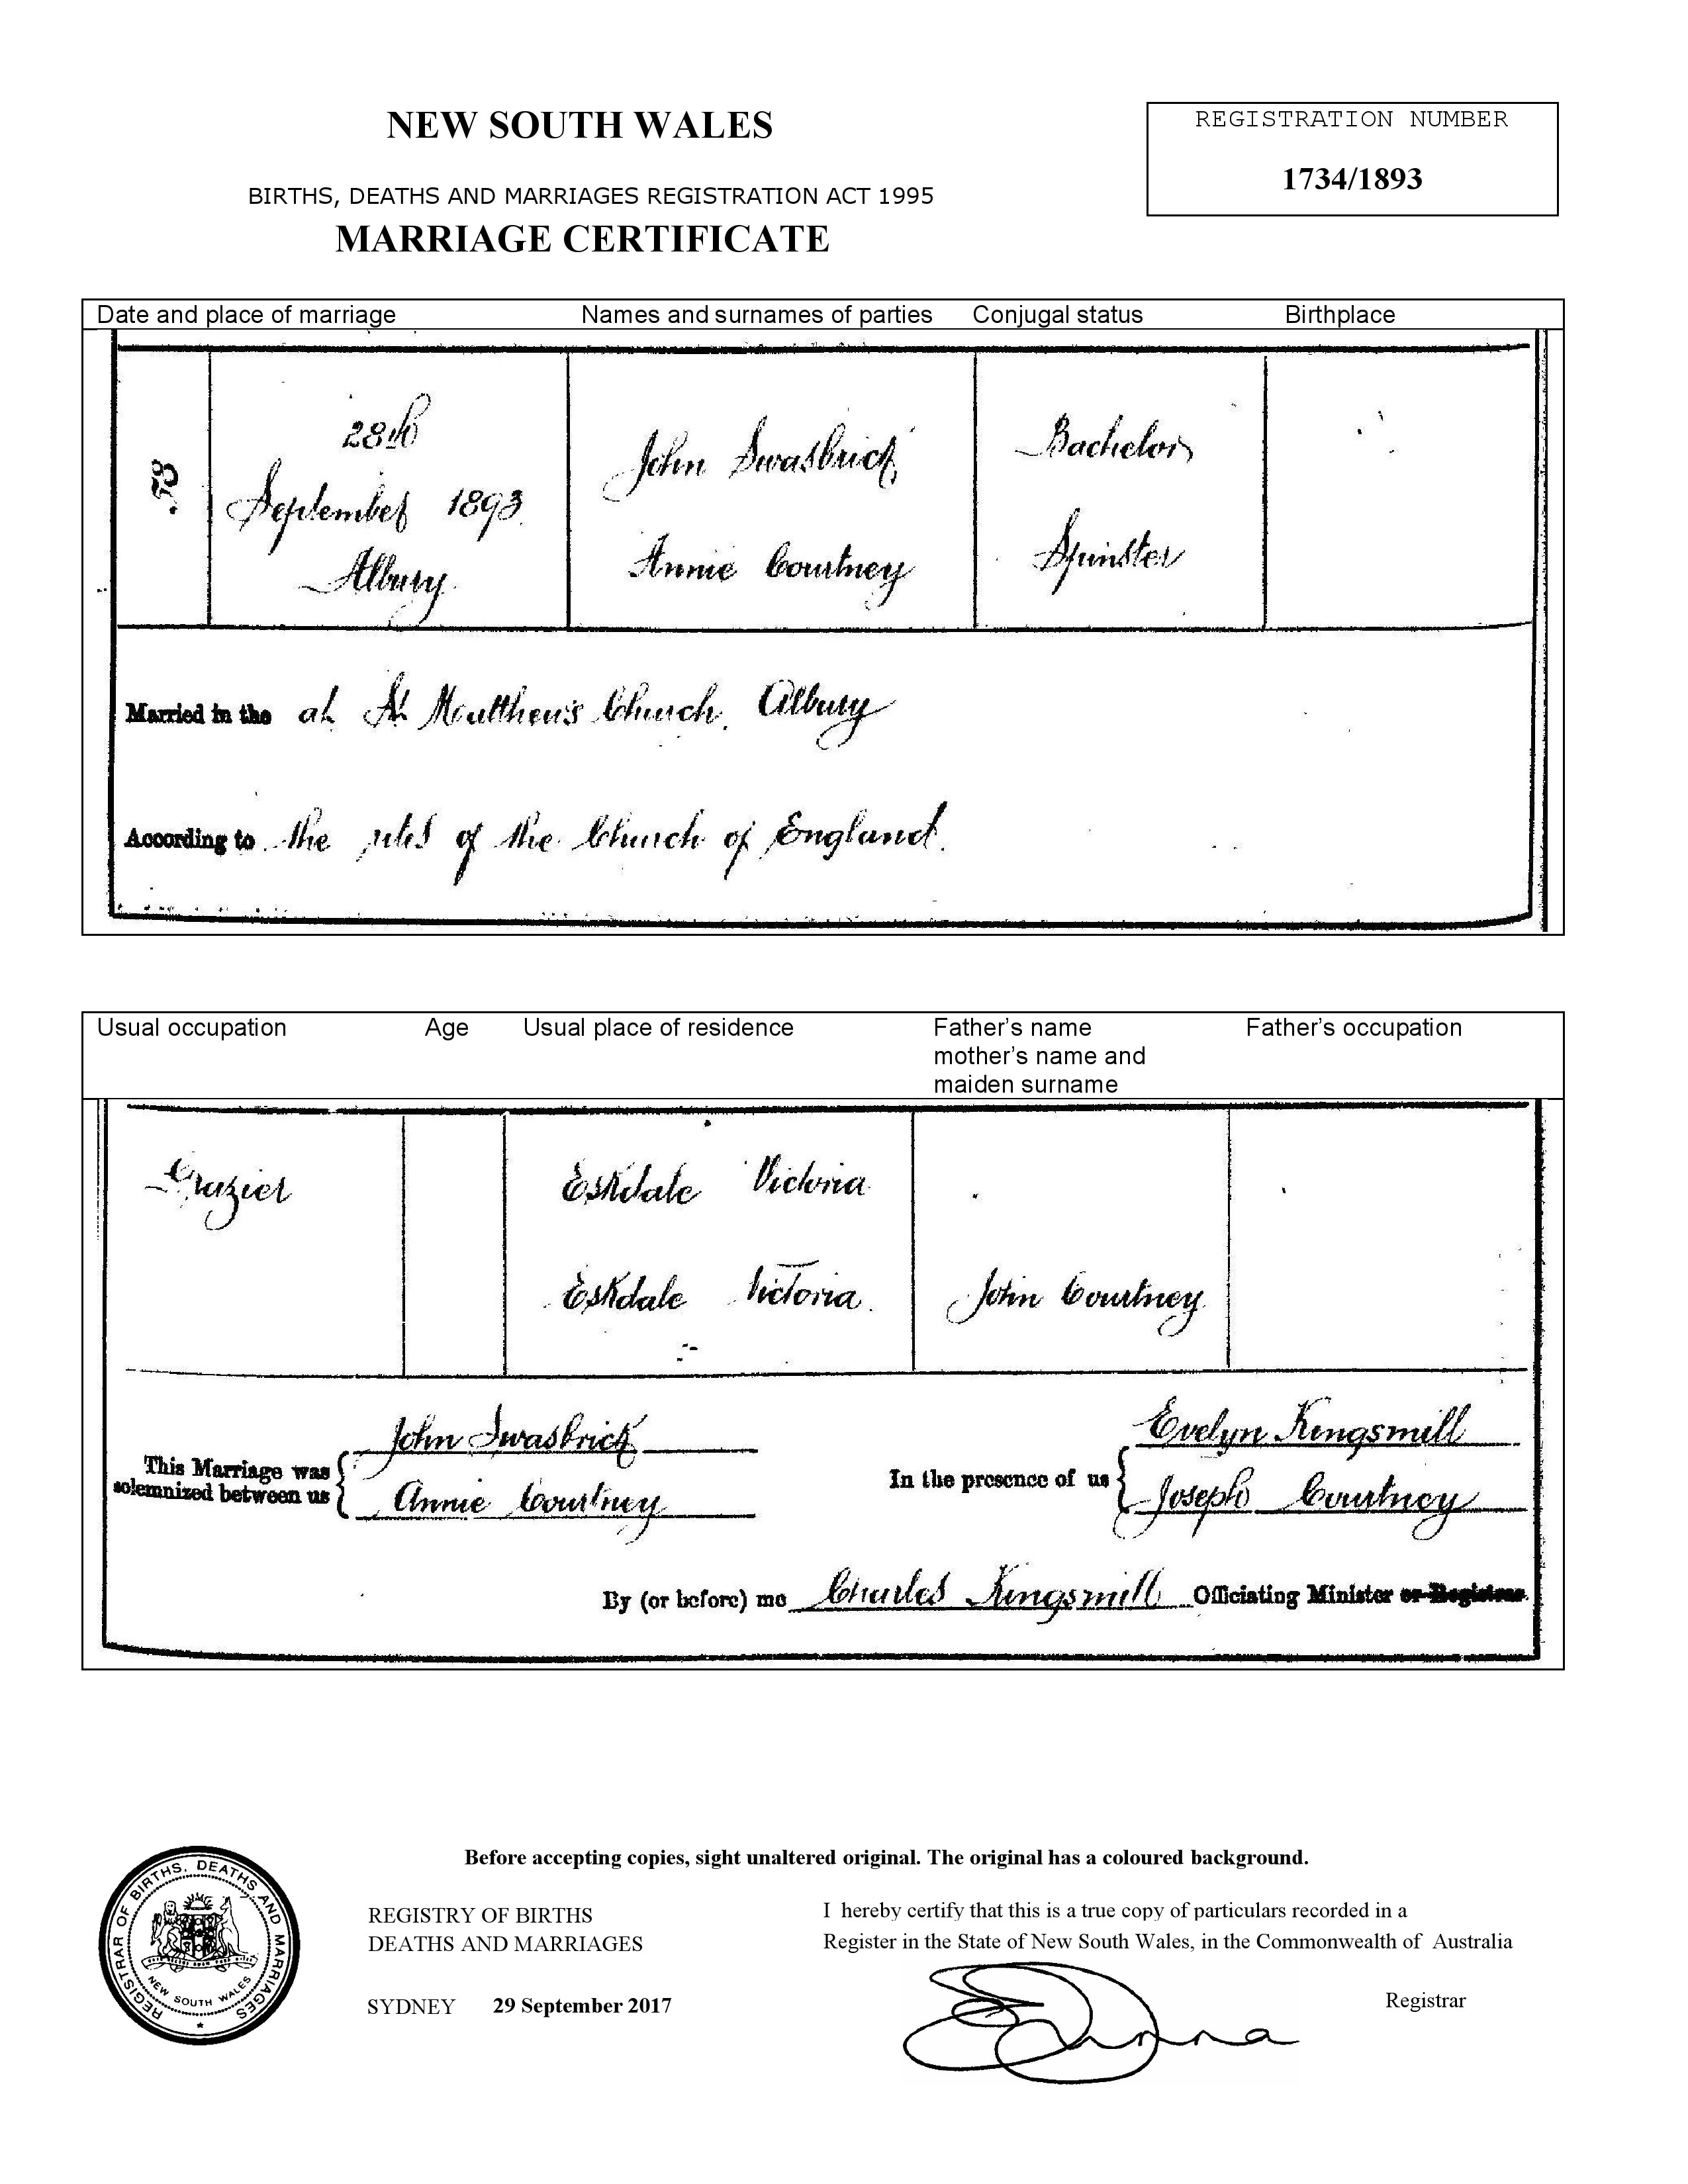 NEW SOUTH WALES
REGISTRATION NUMBER
1734/1893
BIRTHS, DEATHS AND MARRIAGES REGISTRATION ACT 1995
MARRIAGE CERTIFICATE
Date and place of marriage Names and surnames of parties Conjugal status Birthplace
28th
September 1893
Albury
John Swasbrick
Annie Courtney
Bachelor
Spinster
Married in the at St Matthew's Church, Albury
According to the rites of the Church of England.
Usual occupation Age Usual place of residence Father's name mother's name and maiden surname Father's occupation
Grazier
Eskdale Victoria
Eskdale Victoria
John Courtney
This Marriage was solemnized between us
John Swasbrick
Annie Courtney
In the presence of us
Evelyn Kingsmill
Joseph Courtney
By (or before) me Charles Kingsmill Officiating Minister or Registrar.
Before accepting copies, sight unaltered original. The original has a coloured background.
REGISTRAR OF BIRTHS, DEATHS AND MARRIAGES
NEW SOUTH WALES
REGISTRY OF BIRTHS
DEATHS AND MARRIAGES
SYDNEY 29 September 2017
I hereby certify that this is a true copy of particulars recorded in a
Register in the State of New South Wales, in the Commonwealth of Australia
Registrar